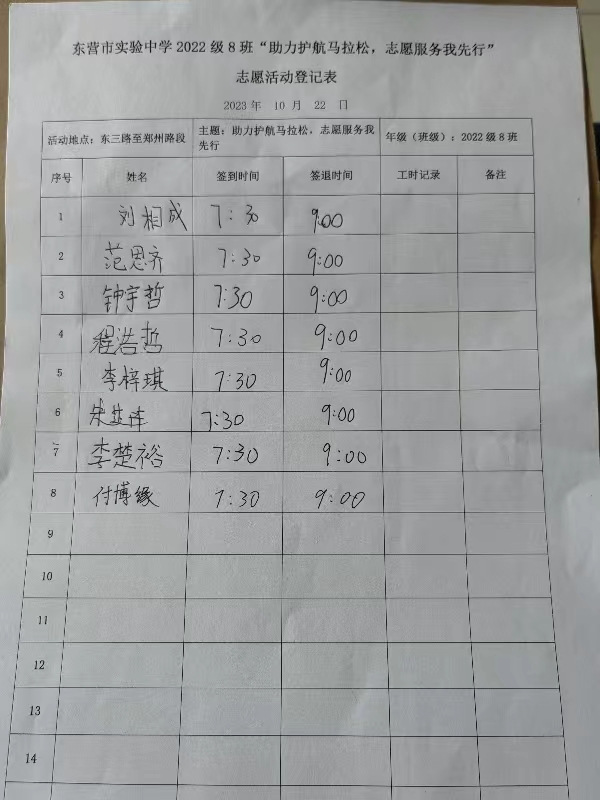 东营市实验中学2022级8班“助力护航马拉松，志愿服务我先行”
志愿活动登记表
2023年 10月 22 日
活动地点：东三路至郑州路段 主题：助力护航马拉松，志愿服务我先行 年级（班级）：2022级8班
序号 姓名 签到时间 签退时间 工时记录 备注
1 刘相成 7:30 9:00
2 范恩齐 7:30 9:00
3 钟宇哲 7:30 9:00
4 程浩哲 7:30 9:00
5 李梓琪 7:30 9:00
6 朱 7:30 9:00
7 李楚裕 7:30 9:00
8 付博缘 7:30 9:00
9
10
11
12
13
14